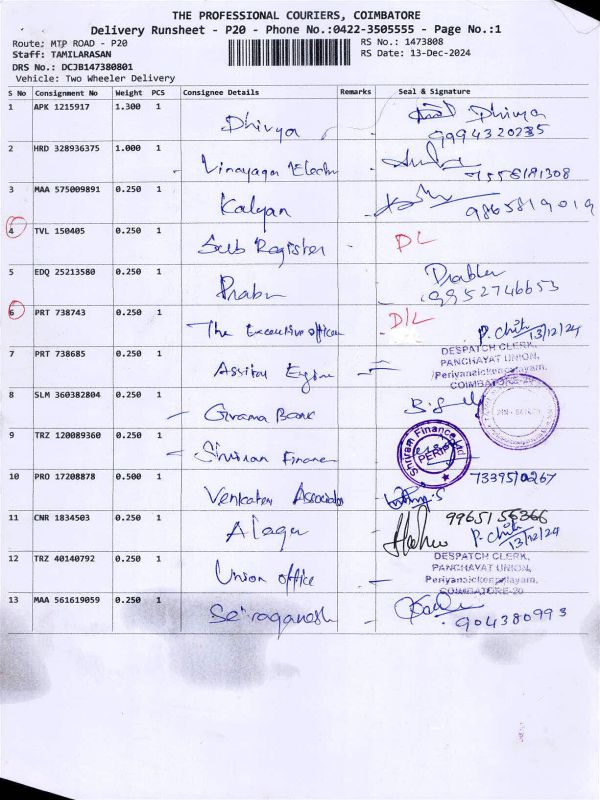 THE PROFESSIONAL COURIERS, COIMBATORE
Delivery Runsheet - P20 - Phone No.:0422-3505555 - Page No.:1
Route: MTP ROAD - P20
RS No.: 1473808
Staff: TAMILARASAN
RS Date: 13-Dec-2024
DRS No.: DCJB147380801
Vehicle: Two Wheeler Delivery
S No Consignment No Weight PCS Consignee Details Remarks Seal & Signature
1 APK 1215917 1.300 1 Dhivya Dhivya
9994320235
2 HRD 328936375 1.000 1 Vinayaga
3 MAA 575009891 0.250 1 Kalyan
9865819019
4 TVL 150405 0.250 1 Sub Register DL
5 EDQ 25213580 0.250 1 Prabu
9952746653
6 PRT 738743 0.250 1 The Executive officer D/L
13/12/24
DESPATCH CLERK,
PANCHAYAT UNION,
Periyanaickenpalayam,
COIMBATORE-20
7 PRT 738685 0.250 1
8 SLM 360382804 0.250 1 Grama Bank
9 TRZ 120089360 0.250 1 Sriram Finance
Shriram Finance Ltd
10 PRO 17208878 0.500 1 Venkatesh Associates
11 CNR 1834503 0.250 1 Alagu
9965155366
13/12/24
12 TRZ 40140792 0.250 1 Union office
DESPATCH CLERK,
PANCHAYAT UNION,
Periyanaickenpalayam,
COIMBATORE-20
13 MAA 561619059 0.250 1
904380993